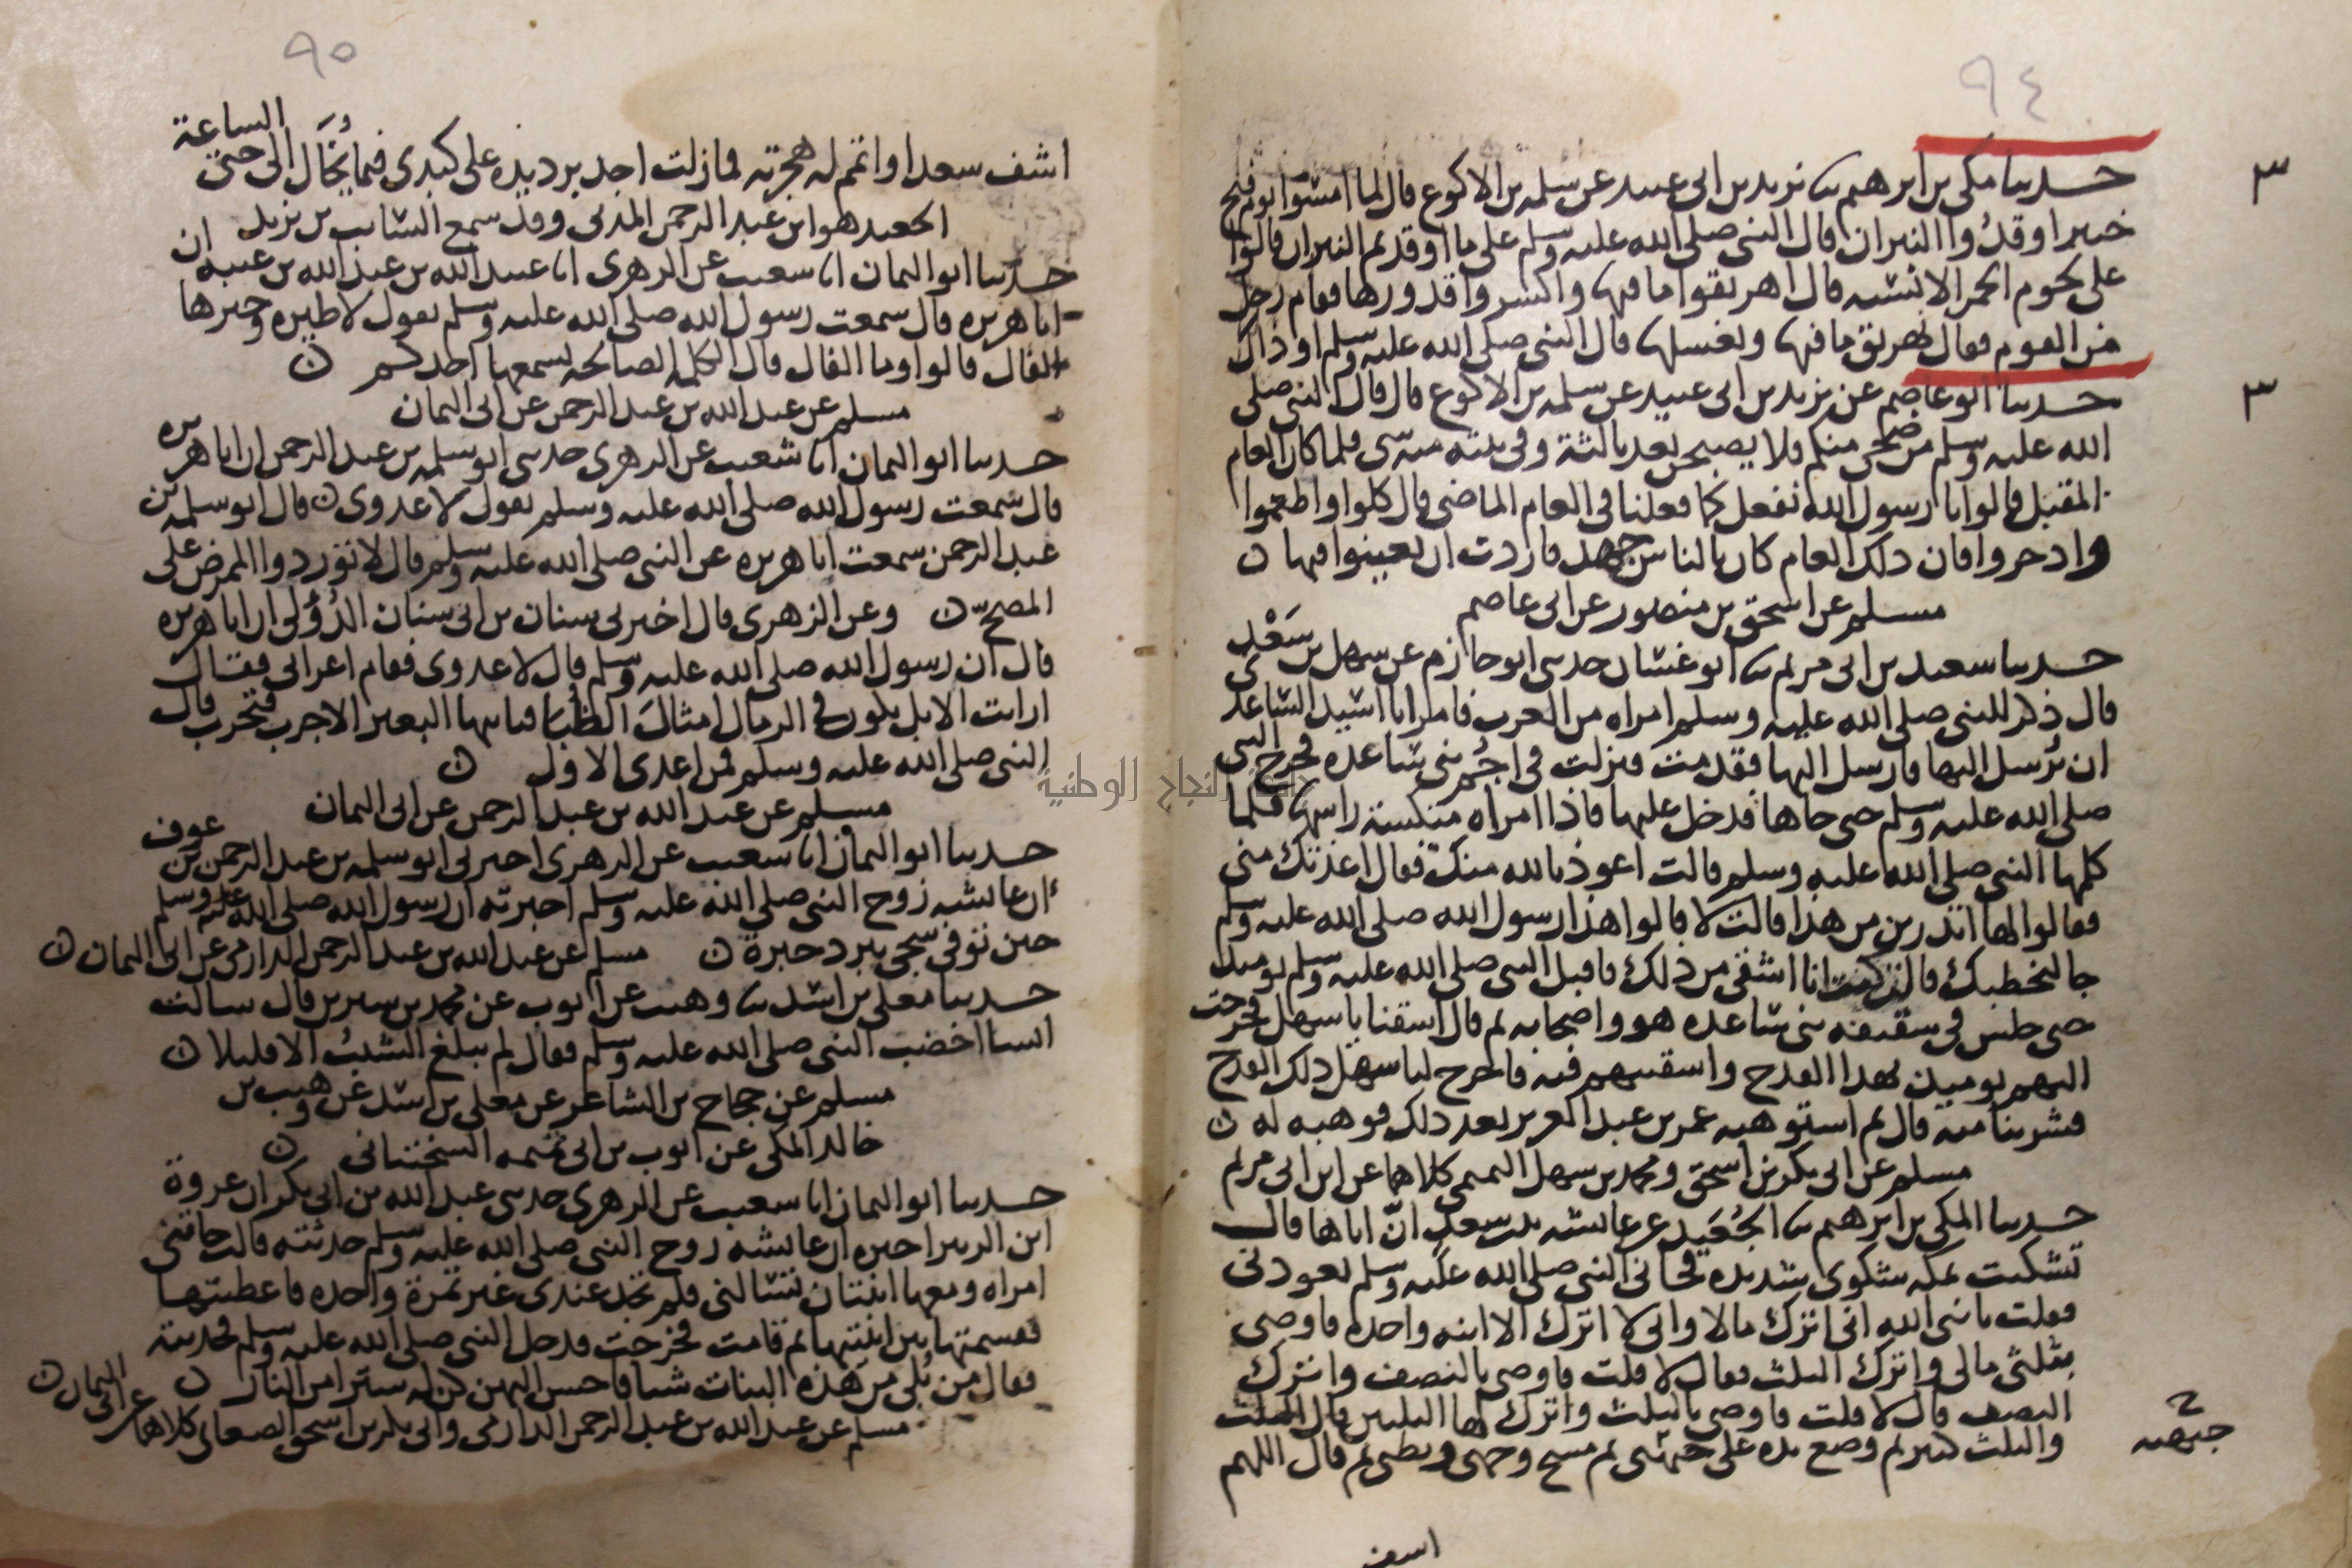 ٩٤
٣
حدثنا مكي بن ابرهيم ثنا يزيد بن ابي عبيد عن سلمه بن الاكوع قال لما امسوا يوم فتح
خيبر اوقدوا النيران قال النبي صلى الله عليه وسلم على ما اوقدتم النيران قالوا
على لحوم الحمر الانسيه قال اهريقوا ما فيها واكسروا قدورها فقام رجل
من القوم فقال نهريق ما فيها ونغسلها قال النبي صلى الله عليه وسلم او ذاك
٣
حدثنا ابو عاصم عن يزيد بن ابي عبيد عن سلمه بن الاكوع قال قال النبي صلى
الله عليه وسلم من ضحى منكم فلا يصبحن بعد ثالثة وفي بيته منه شي فلما كان العام
المقبل قالوا يا رسول الله نفعل كما فعلنا في العام الماضي قال كلوا واطعموا
وادخروا فان ذلك العام كان بالناس جهد فاردت ان تعينوا فيها ن
مسلم عن اسحق بن منصور عن ابي عاصم
حدثنا سعيد بن ابي مريم ثنا ابو غسان حدثني ابو حازم عن سهل بن سَعْد
قال ذكر للنبي صلى الله عليه وسلم امراه من العرب فامر ابا اسيد الساعدي
ان يُرسل اليها فارسل اليها فقدمت فنزلت في اجُم بني ساعده فخرج النبي
صلى الله عليه وسلم حتى جاها فدخل عليها فاذا امراه منكسة راسها فلما
كلمها النبي صلى الله عليه وسلم قالت اعوذ بالله منك فقال اعذتك مني
فقالوا لها اتدرين من هذا قالت لا قالوا هذا رسول الله صلى الله عليه وسلم
جا ليخطبك قالت كنت انا اشقى من ذلك فاقبل النبي صلى الله عليه وسلم يوميذ
حتى جلس في سقيفه بني ساعده هو واصحابه ثم قال اسقنا يا سهل فخرجت
اليهم يوميذ بهذا القدح واسقيتهم فيه فاخرج لنا سهل ذلك القدح
فشربنا منه قال ثم استوهبه عمر بن عبد العزيز بعد ذلك فوهبه له ن
مسلم عن ابي بكر بن اسحق ومحمد بن سهل التميمي كلاهما عن ابن ابي مريم
حدثنا المكي بن ابرهيم ثنا الجُعَيد عن عايشه بنت سعد انّ اباها قال
تشكيت بمكه شكوى شديده فجاني النبي صلى الله عليه وسلم يعودني
فقلت يا نبي الله اني اترك مالا واني لا اترك الا ابنه واحده فاوصي
بثلثي مالي واترك الثلث فقال لا قلت فاوصي بالنصف واترك
النصف قال لا قلت فاوصي بالثلث واترك لها الثلثين قال الثلث
والثلث كثير ثم وضع يده على جبهتي ثم مسح وجهي وبطني ثم قال اللهم
جبهته
اشف
٩٥
اشف سعدا واتمم له هجرته فما زلت اجد برد يده على كبدي فما يُخَال الى حتى الساعة
الجعيد هو ابن عبد الرحمن المدني وقد سمع السايب بن يزيد
حدثنا ابو اليمان انا شعيب عن الزهري انا عبيد الله بن عبد الله بن عتبه ان
ابا هريره قال سمعت رسول الله صلى الله عليه وسلم يقول لا طيره وخيرها
الفال قالوا وما الفال قال الكلمه الصالحه يسمعها احدكم ن
مسلم عن عبد الله بن عبد الرحمن عن ابي اليمان
حدثنا ابو اليمان انا شعيب عن الزهري حدثني ابو سلمه بن عبد الرحمن ان ابا هريره
قال سمعت رسول الله صلى الله عليه وسلم يقول لا عدوى ن قال ابو سلمه بن
عبد الرحمن سمعت ابا هريره عن النبي صلى الله عليه وسلم قال لا توردوا الممرض على
المصحّ ن وعن الزهري قال اخبرني سنان بن ابي سنان الدُؤلي ان ابا هريره
قال ان رسول الله صلى الله عليه وسلم قال لا عدوى فقام اعرابي فقال
ارايت الابل يكون في الرمال امثال الظبا فياتيها البعير الاجرب فتجرب قال
النبي صلى الله عليه وسلم فمن اعدى الاول ن
مسلم عن عبد الله بن عبد الرحمن عن ابي اليمان
حدثنا ابو اليمان انا شعيب عن الزهري اخبرني ابو سلمه بن عبد الرحمن بن عوف
ان عايشه زوج النبي صلى الله عليه وسلم اخبرته ان رسول الله صلى الله عليه وسلم
حين توفى سجي ببرد حبرة ن مسلم عن عبد الله بن عبد الرحمن الدارمي عن ابي اليمان ن
حدثنا معلى بن اسد ثنا وهيب عن ايوب عن محمد بن سيرين قال سالت
انسا اخضب النبي صلى الله عليه وسلم فقال لم يبلغ الشيبُ الا قليلا ن
مسلم عن حجاج بن الشاعر عن معلى بن اسد عن وهيب بن
خالد المكي عن ايوب بن ابي تميمه السختياني ن
حدثنا ابو اليمان انا شعيب عن الزهري حدثني عبد الله بن ابي بكر ان عروة
ابن الزبير اخبره ان عايشه زوج النبي صلى الله عليه وسلم حدثته قالت جاتني
امراه ومعها ابنتان تسالني فلم تجد عندي غير تمرة واحده فاعطيتها
فقسمتها بين ابنتيها ثم قامت فخرجت فدخل النبي صلى الله عليه وسلم فحدثته
فقال من بُلي من هذه البنات شيا فاحسن اليهن كن له سترا من النار ن
مسلم عن عبد الله بن عبد الرحمن الدارمي وابي بكر بن اسحق الصغاني كلاهما عن ابي اليمان ن
جامعة النجاح الوطنية